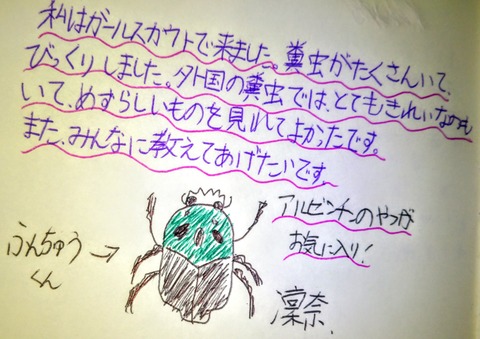 私はガールスカウトで来ました。糞虫がたくさんいて、
びっくりしました。外国の糞虫では、とてもきれいなのも
いて、めずらしいものを見れてよかったです。
また、みんなに教えてあげたいです。
アルゼンチンのやつが
お気に入り!
ふんちゅう
くん
凜奈.